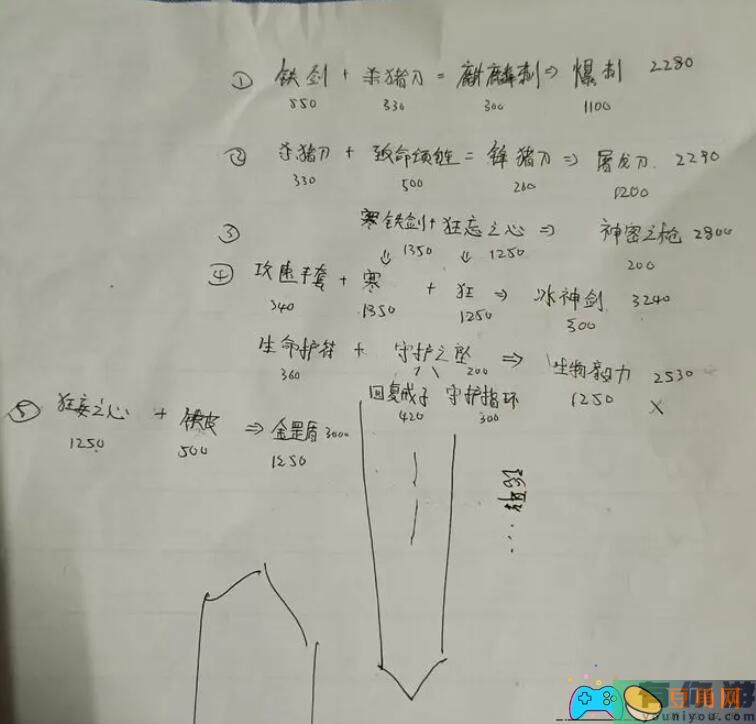 ① 铁剑 + 杀猪刀 = 麒麟刺 ⇒ 爆刺 2280
550 330 300 1100
② 杀猪刀 + 致命项链 = 锋猪刀 ⇒ 屠龙刀 2290
330 500 260 1200
③ 寒铁剑 + 狂忘之心 ⇒ 神密之枪 2800
1350 1250 200
④ 攻速手套 + 寒 + 狂 ⇒ 冰神剑 3240
340 1350 1250 300
生命护符 + 守护之坠 ⇒ 生物毅力 2530
360 200 1250 X
回复戒子 守护指环
420 300
⑤ 狂妄之心 + 铁皮 ⇒ 金罡盾 3000
1250 500 1250
豆角网
youniyou.com